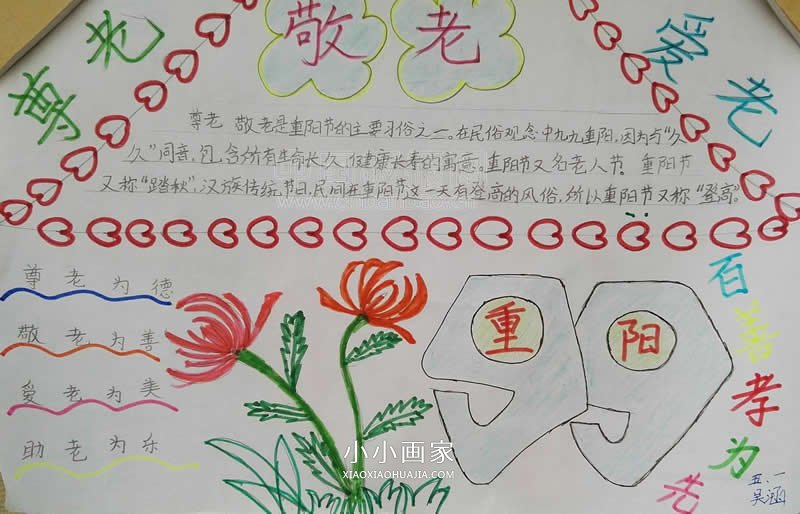 尊老
敬老
爱老
尊老 敬老是重阳节的主要习俗之一。在民俗观念中九九重阳,因为与“久
久”同音,包含有生命长久、健康长寿的寓意。重阳节又名老人节。重阳节
又称“踏秋”,汉族传统节日,民间在重阳节这一天有登高的风俗,所以重阳节又称“登高”。
尊老为德
敬老为善
爱老为美
助老为乐
重阳
百善孝为先
五.一
吴涵
小小画家
XIAOXIAOHUAJIA.COM